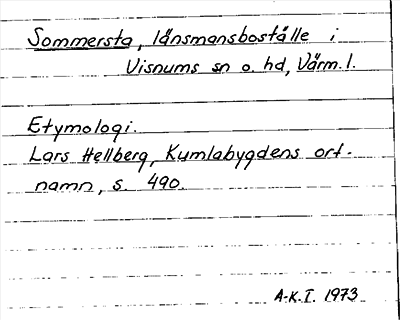 Sommersta, länsmansboställe i
Visnums sn o. hd, Värm. l.
Etymologi.
Lars Hellberg, Kumlabygdens ort-
namn, s. 490.
A-K. I. 1973